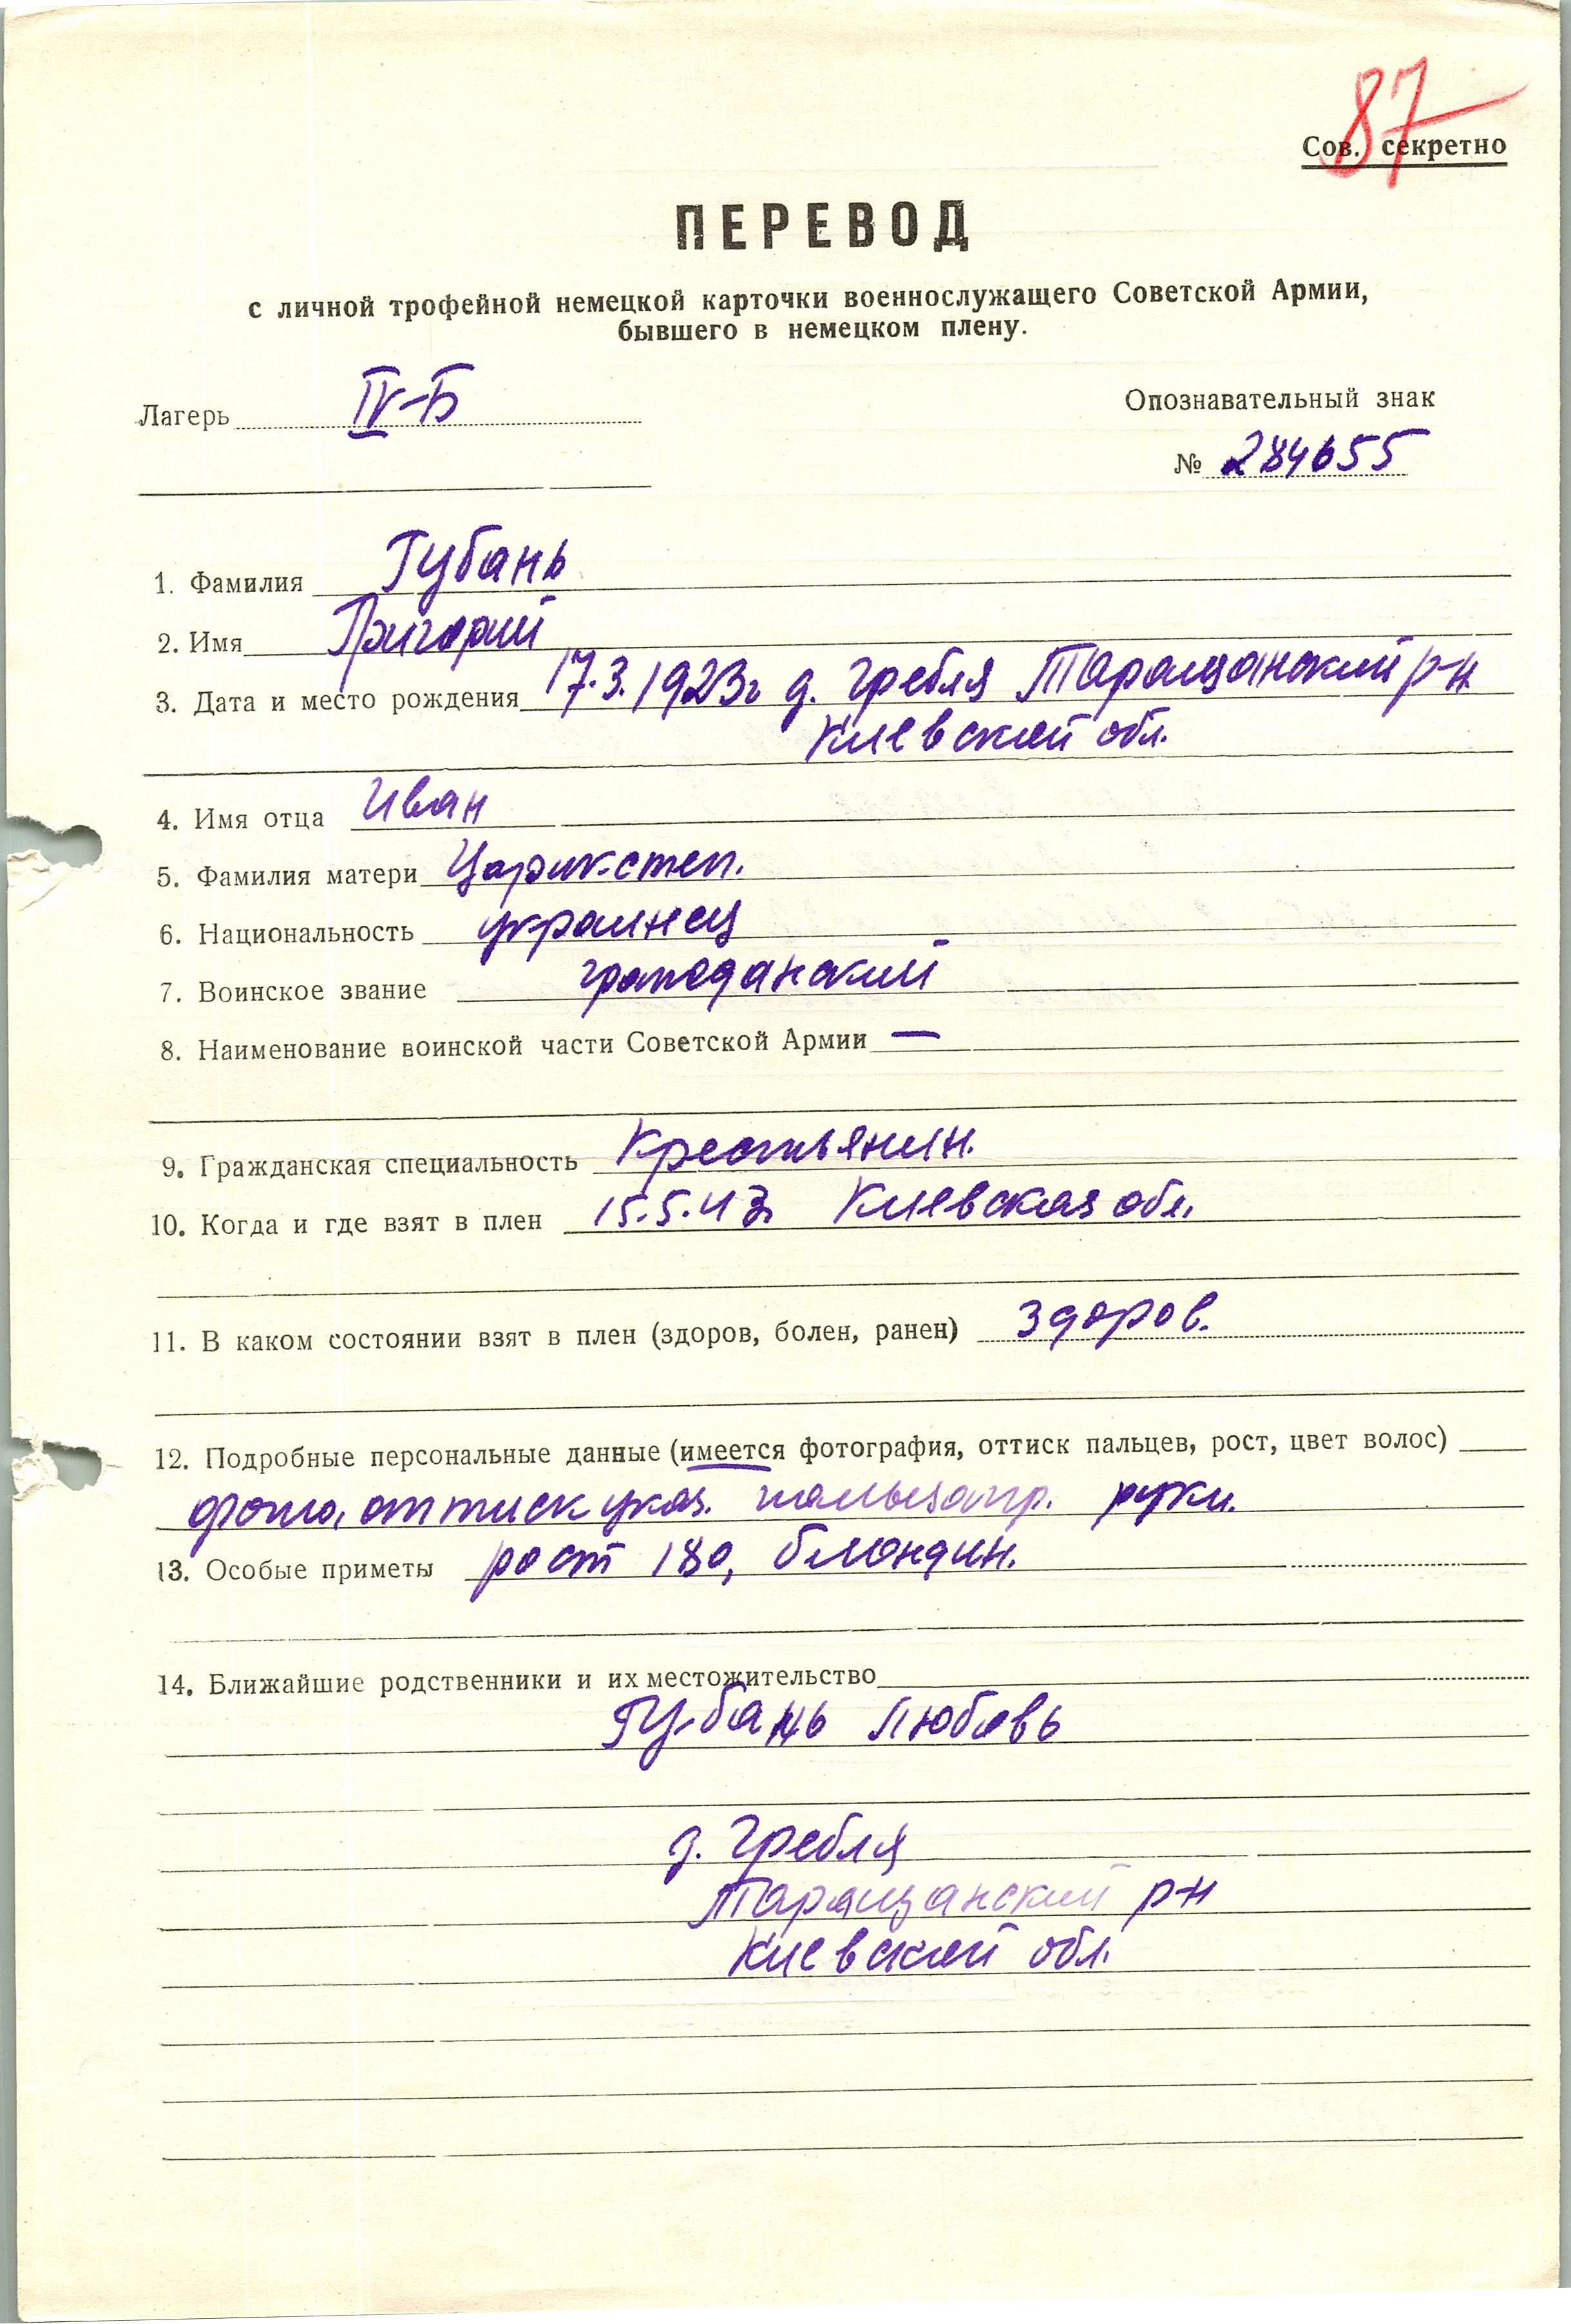 87
Сов. секретно
ПЕРЕВОД
с личной трофейной немецкой карточки военнослужащего Советской Армии,
бывшего в немецком плену.
Лагерь IV-Б
Опознавательный знак
№ 284655
1. Фамилия Губань
2. Имя Григорий
3. Дата и место рождения 17.3.1923г д. Гребля Таращанский р-н
Киевской обл.
4. Имя отца Иван
5. Фамилия матери
6. Национальность украинец
7. Воинское звание гражданский
8. Наименование воинской части Советской Армии —
9. Гражданская специальность Крестьянин.
10. Когда и где взят в плен 15.5.43 Киевская обл.
11. В каком состоянии взят в плен (здоров, болен, ранен) здоров.
12. Подробные персональные данные (имеется фотография, оттиск пальцев, рост, цвет волос)
фото, оттиск указ. пальца пр. руки.
13. Особые приметы рост 180, блондин.
14. Ближайшие родственники и их местожительство
Губань Любовь
д. Гребля
Таращанский р-н
Киевской обл.